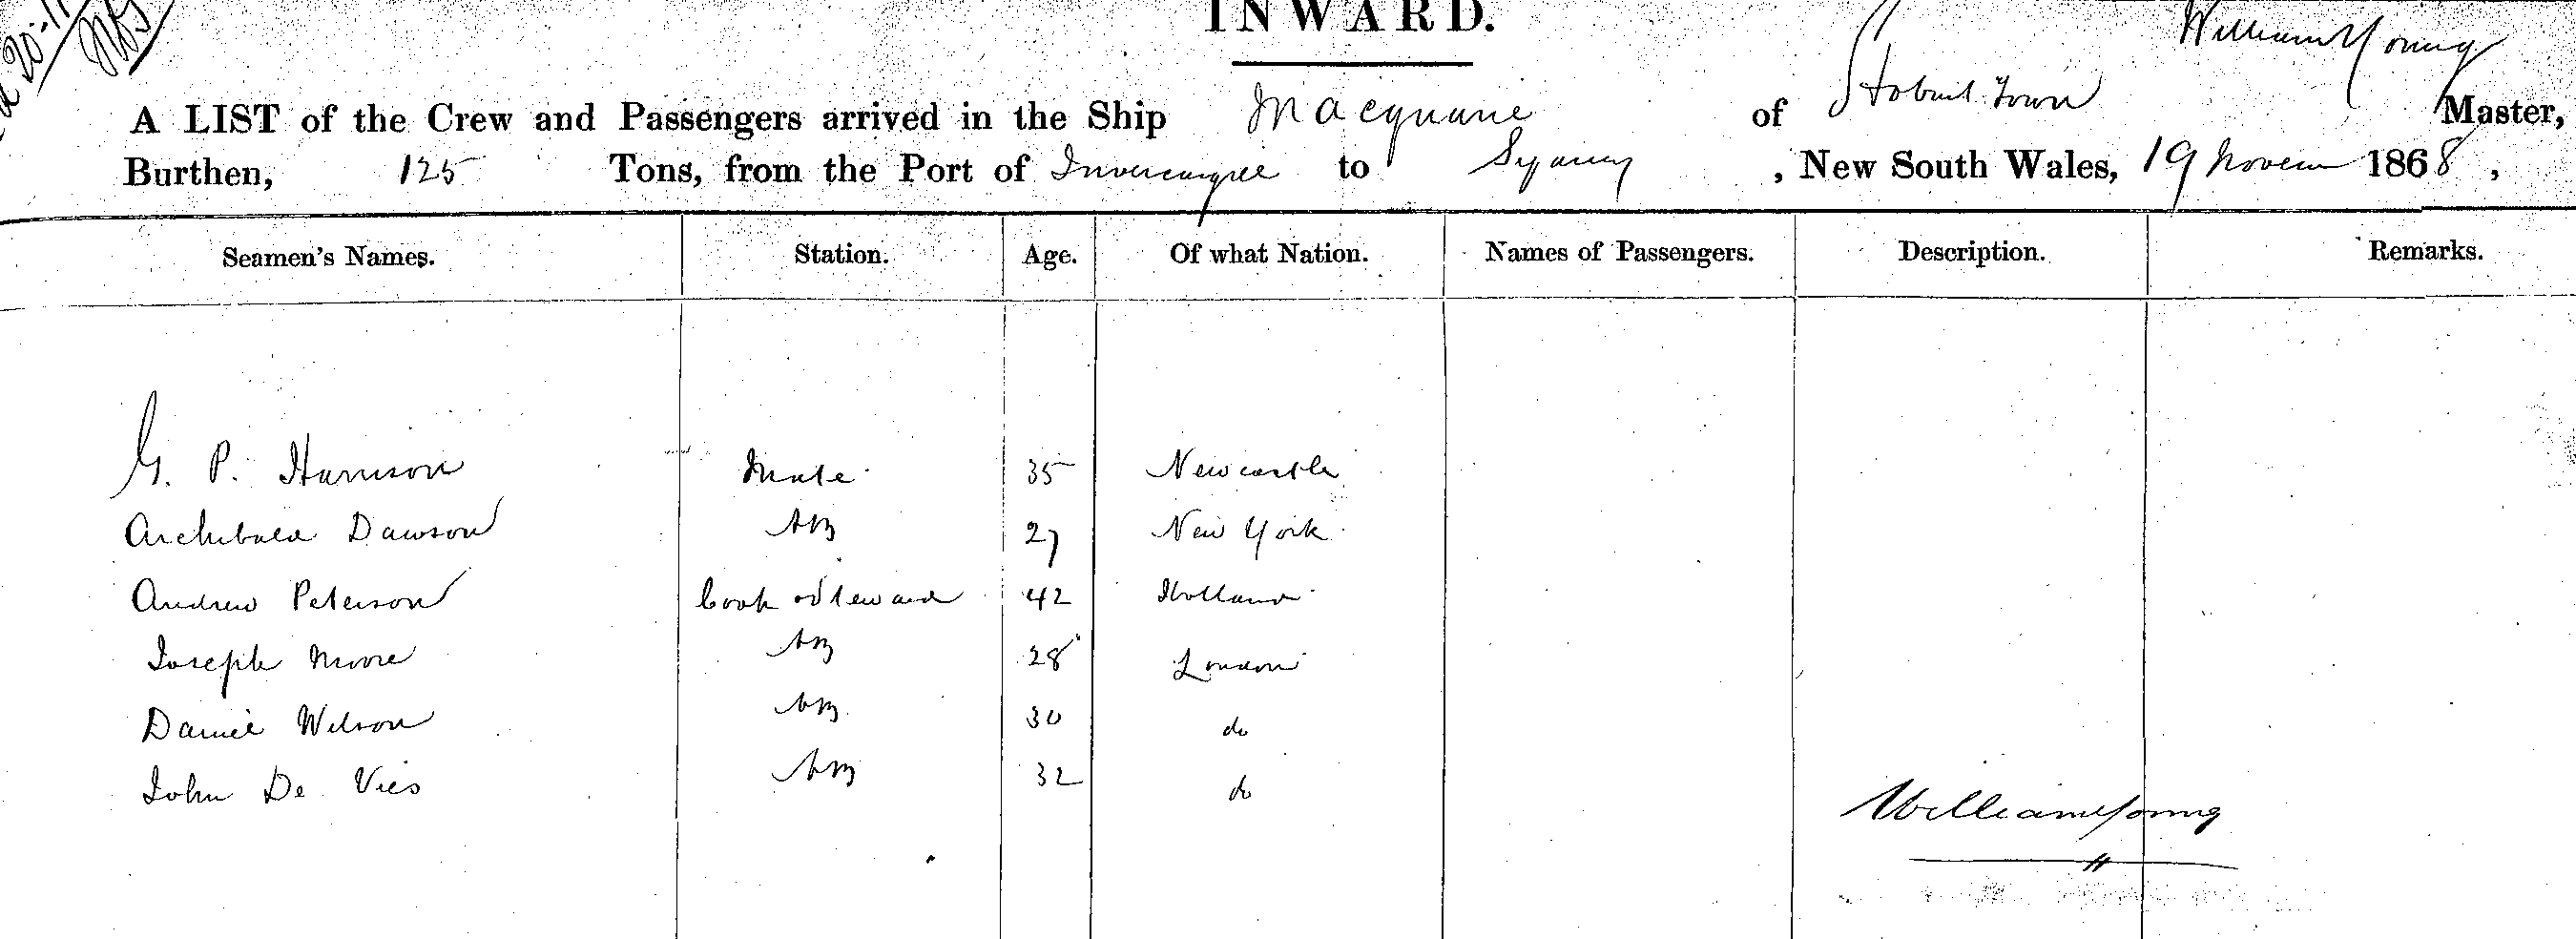 INWARD.
William Young
A LIST of the Crew and Passengers arrived in the Ship Macquarie of Hobart Town Master,
Burthen, 125 Tons, from the Port of Invercargill to Sydney , New South Wales, 19 Novem 1868 ,
Seamen's Names. Station. Age. Of what Nation. Names of Passengers. Description. Remarks.
G. P. Harrison Mate 35 Newcastle
Archibald Dawson AB 27 New York
Andrew Peterson Cook & Steward 42 Holland
Joseph Moore AB 28 London
Daniel Wilson AB 30 do
John De Vies AB 32 do
William Young